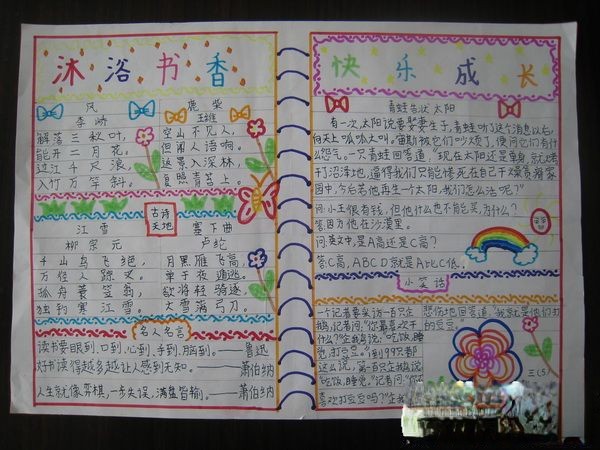 沐浴书香
风
李峤
解落三秋叶，
能开二月花。
过江千尺浪，
入竹万竿斜。
鹿柴
王维
空山不见人，
但闻人语响。
返景入深林，
复照青苔上。
古诗
天地
江雪
柳宗元
千山鸟飞绝，
万径人踪灭。
孤舟蓑笠翁，
独钓寒江雪。
塞下曲
卢纶
月黑雁飞高，
单于夜遁逃。
欲将轻骑逐，
大雪满弓刀。
名人名言
读书要眼到、口到、心到、手到、脑到。——鲁迅
好书读得越多越让人感到无知。——萧伯纳
人生就像弈棋，一步失误，满盘皆输。——萧伯纳
快乐成长
青蛙告状太阳
有一次，太阳说要娶妻生子，青蛙听了这个消息以后，
向天上呱呱大叫。宙斯被它们吵烦了，便问它们有什
么怨气。一只青蛙回答道，“现在太阳还是单身，就以
干了沼泽地，逼得我们只能等死在自己干燥贫瘠家
园中，今后若他再生一个太阳，我们怎么活呢？”
问：小王很有钱，但他什么也不能买，为什么？
答：因为他在沙漠里。
问：英文中，是A高还是C高？
答：C高，ABCD就是A比C低。
小笑话
一个记者要采访一百只企
鹅，记者问，“你最喜欢干
什么？”企鹅说：“吃饭，睡
觉，打豆豆。”到99只都
这么说，第一百只企鹅说
“吃饭，睡觉。”记者问：“你不
喜欢打豆豆吗？”企鹅
悲伤地回答道，我就是他们打
的豆豆。
三（5）